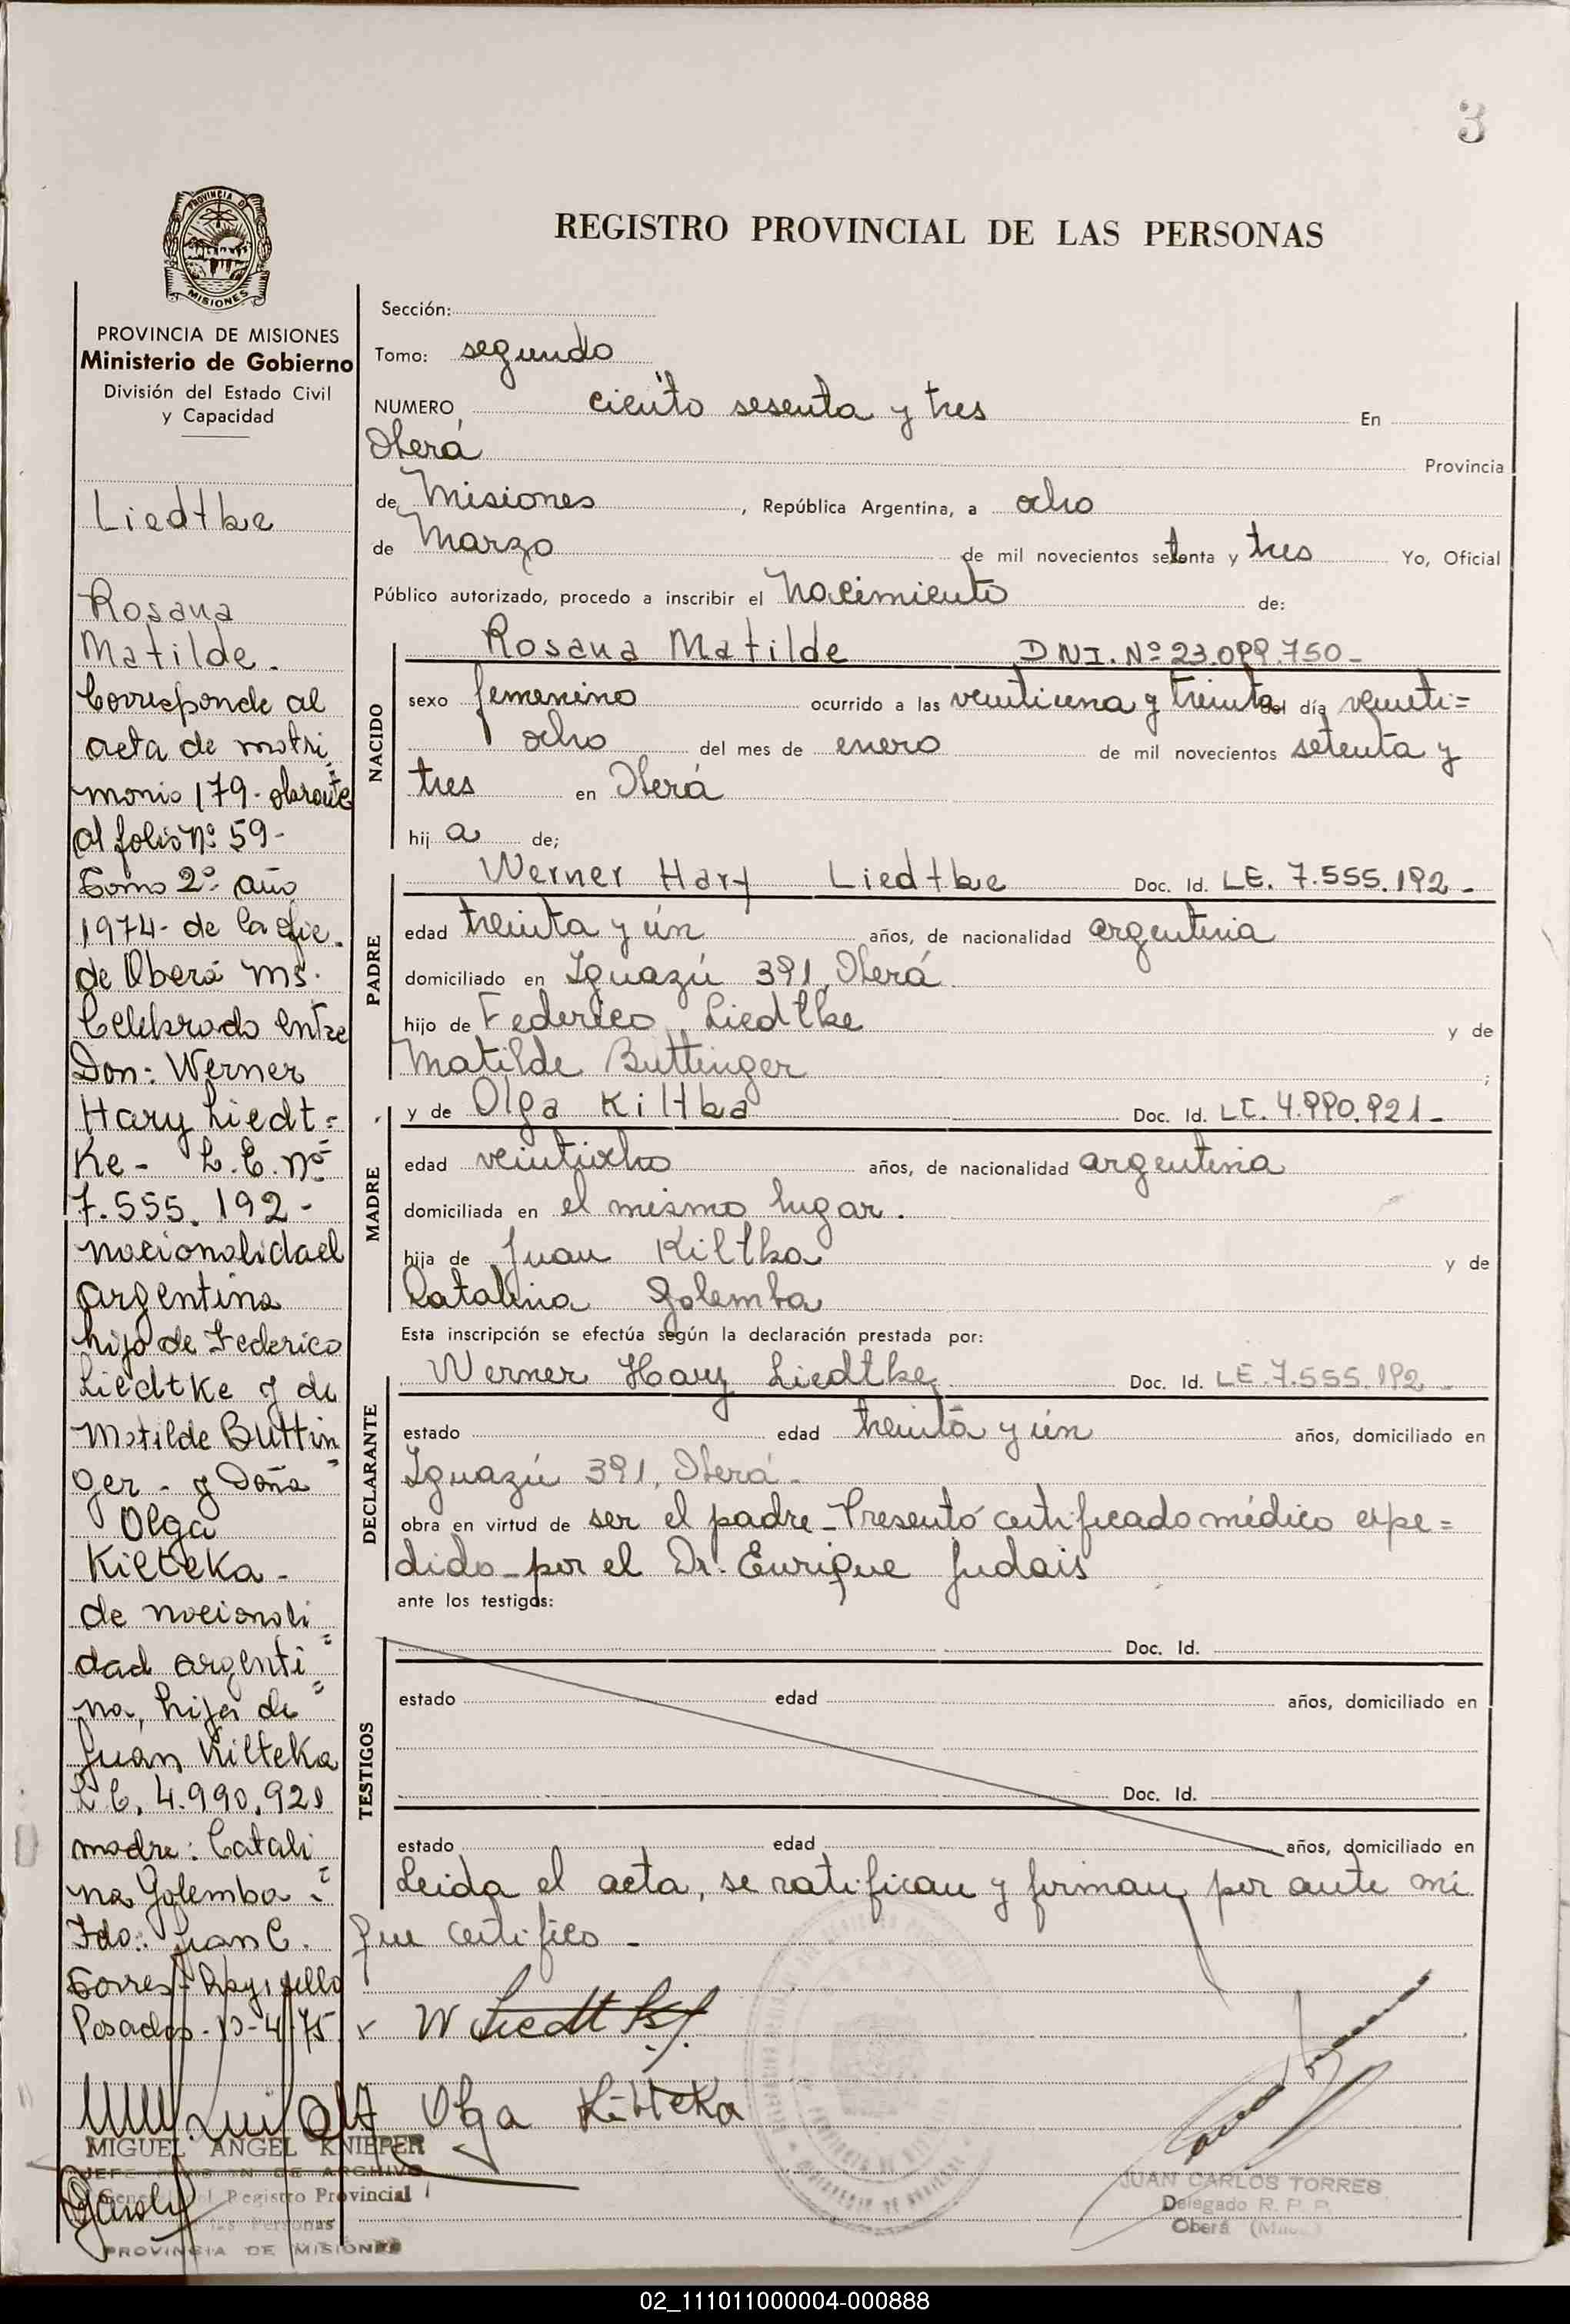 3
PROVINCIA DE
MISIONES
REGISTRO PROVINCIAL DE LAS PERSONAS
PROVINCIA DE MISIONES
Ministerio de Gobierno
División del Estado Civil
y Capacidad
Liedtke
Rosana
Matilde.
Corresponde al
acta de matri=
monio 179- obrante
al folio Nº 59-
Tomo 2º año
1974- de la Ofic.
de Oberá Ms.
Celebrado entre
Don: Werner
Hary Liedt=
Ke- L.E. Nº
7.555.192-
nacionalidad
argentina
hijo de Federico
Liedtke y de
Matilde Buttin=
ger - y Doña
Olga
Kilteka-
de nacionali=
dad argenti=
na, hija de
Juan Kilteka
L.C. 4.990.921
madre: Catali=
na Golemba.-
Fdo: Juan C.
Torres- Hay sello
Posadas-
MIGUEL ANGEL KNIEPER
JEFE DE ARCHIVO
General del Registro Provincial
de las Personas
PROVINCIA DE MISIONES
Sección:
Tomo: segundo
NUMERO ciento sesenta y tres En
Oberá Provincia
de Misiones, República Argentina, a ocho
de Marzo de mil novecientos setenta y tres Yo, Oficial
Público autorizado, procedo a inscribir el Nacimiento de:
NACIDO
Rosana Matilde DNI. Nº 23.099.750-
sexo femenino ocurrido a las veintiuna y treinta del día veinti=
ocho del mes de enero de mil novecientos setenta y
tres en Oberá
hij a de;
PADRE
Werner Hary Liedtke Doc. Id. LE. 7.555.192-
edad treinta y ún años, de nacionalidad argentina
domiciliado en Iguazú 391, Oberá
hijo de Federico Liedtke y de
Matilde Buttinger ;
MADRE
y de Olga Kiltka Doc. Id. LC. 4.990.921-
edad veintiocho años, de nacionalidad argentina
domiciliada en el mismo lugar.
hija de Juan Kiltka y de
Catalina Golemba
Esta inscripción se efectúa según la declaración prestada por:
DECLARANTE
Werner Hary Liedtke Doc. Id. LE.7.555.192-
estado edad treinta y ún años, domiciliado en
Iguazú 391, Oberá-
obra en virtud de ser el padre-Presentó certificado médico expe=
dido-por el Dr. Enrique Judais
ante los testigos:
TESTIGOS
Doc. Id.
estado edad años, domiciliado en
Doc. Id.
estado edad años, domiciliado en
Leida el acta, se ratifican y firman por ante mi
que certifico-
W Liedtke
Olga Kilteka
JUAN CARLOS TORRES
Delegado R. P. P.
Oberá
02_111011000004-000888